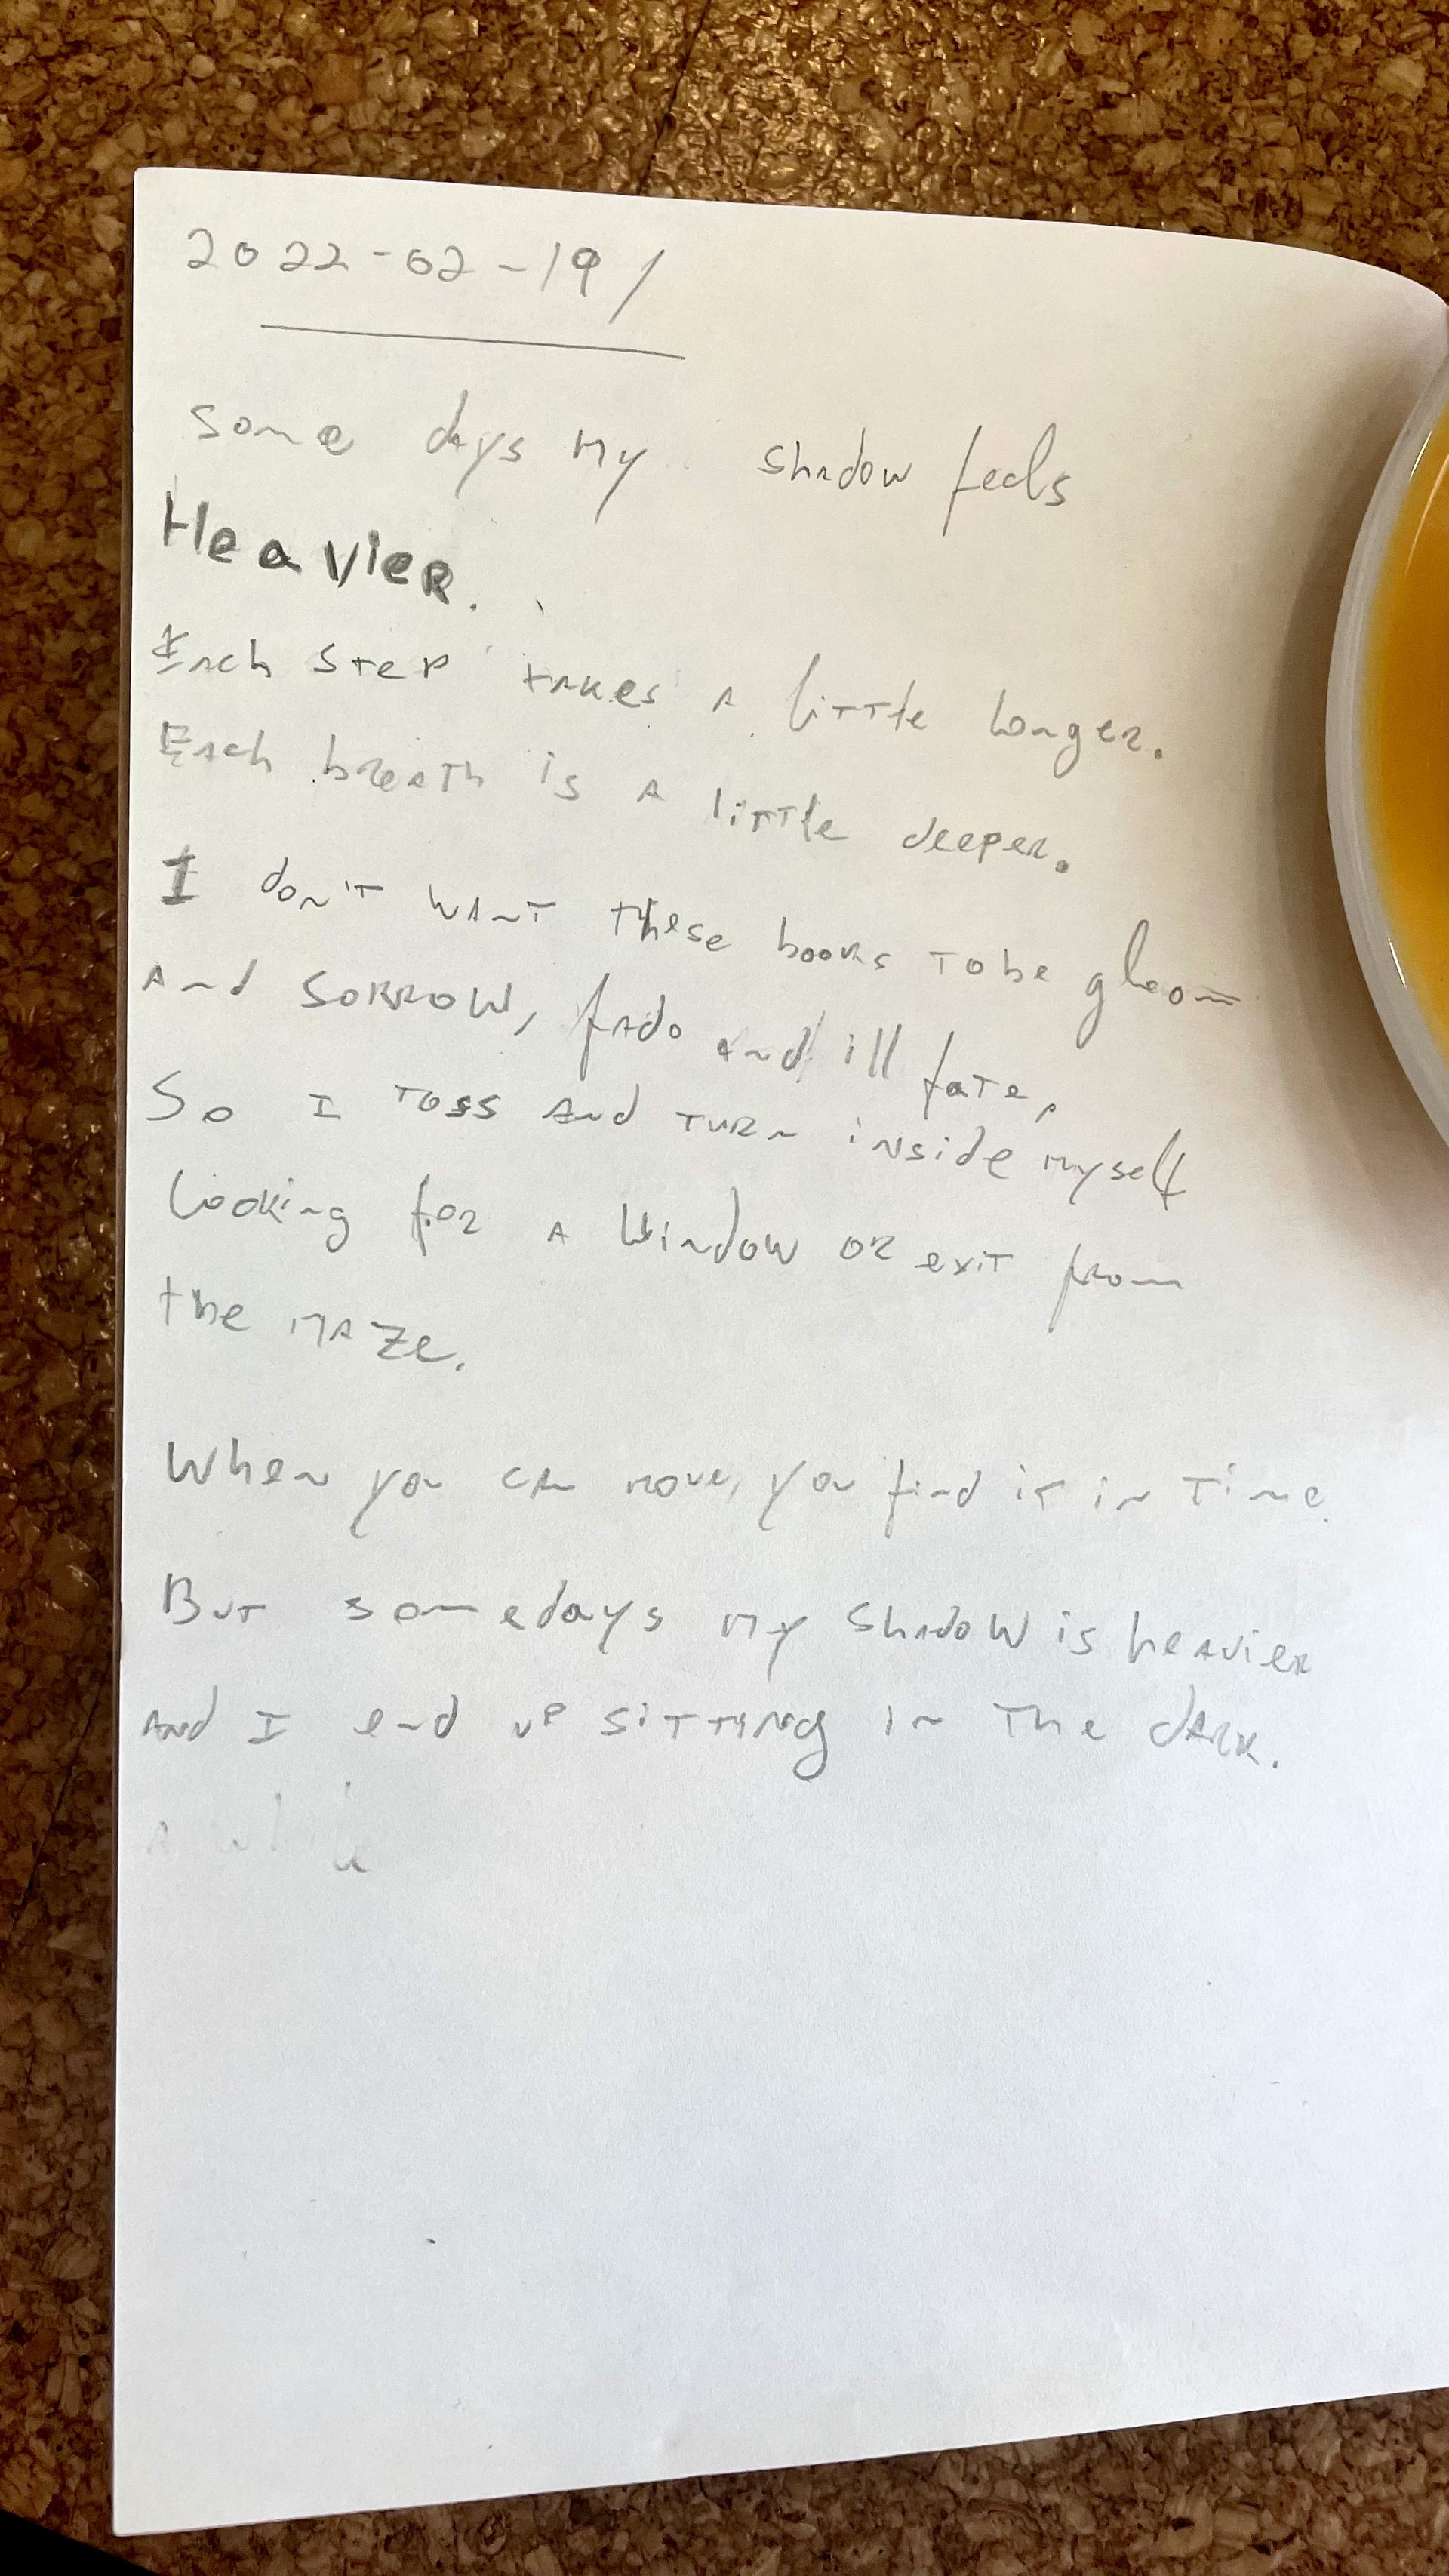 2022-02-19/
some days my shadow feels
Heavier.
Each step takes a little longer.
Each breath is a little deeper.
I don't want these books to be gloom
and sorrow, fado and ill fate,
So I toss and turn inside myself
looking for a window or exit from
the maze.
When you can move, you find it in time.
But somedays my shadow is heavier
and I end up sitting in the dark.